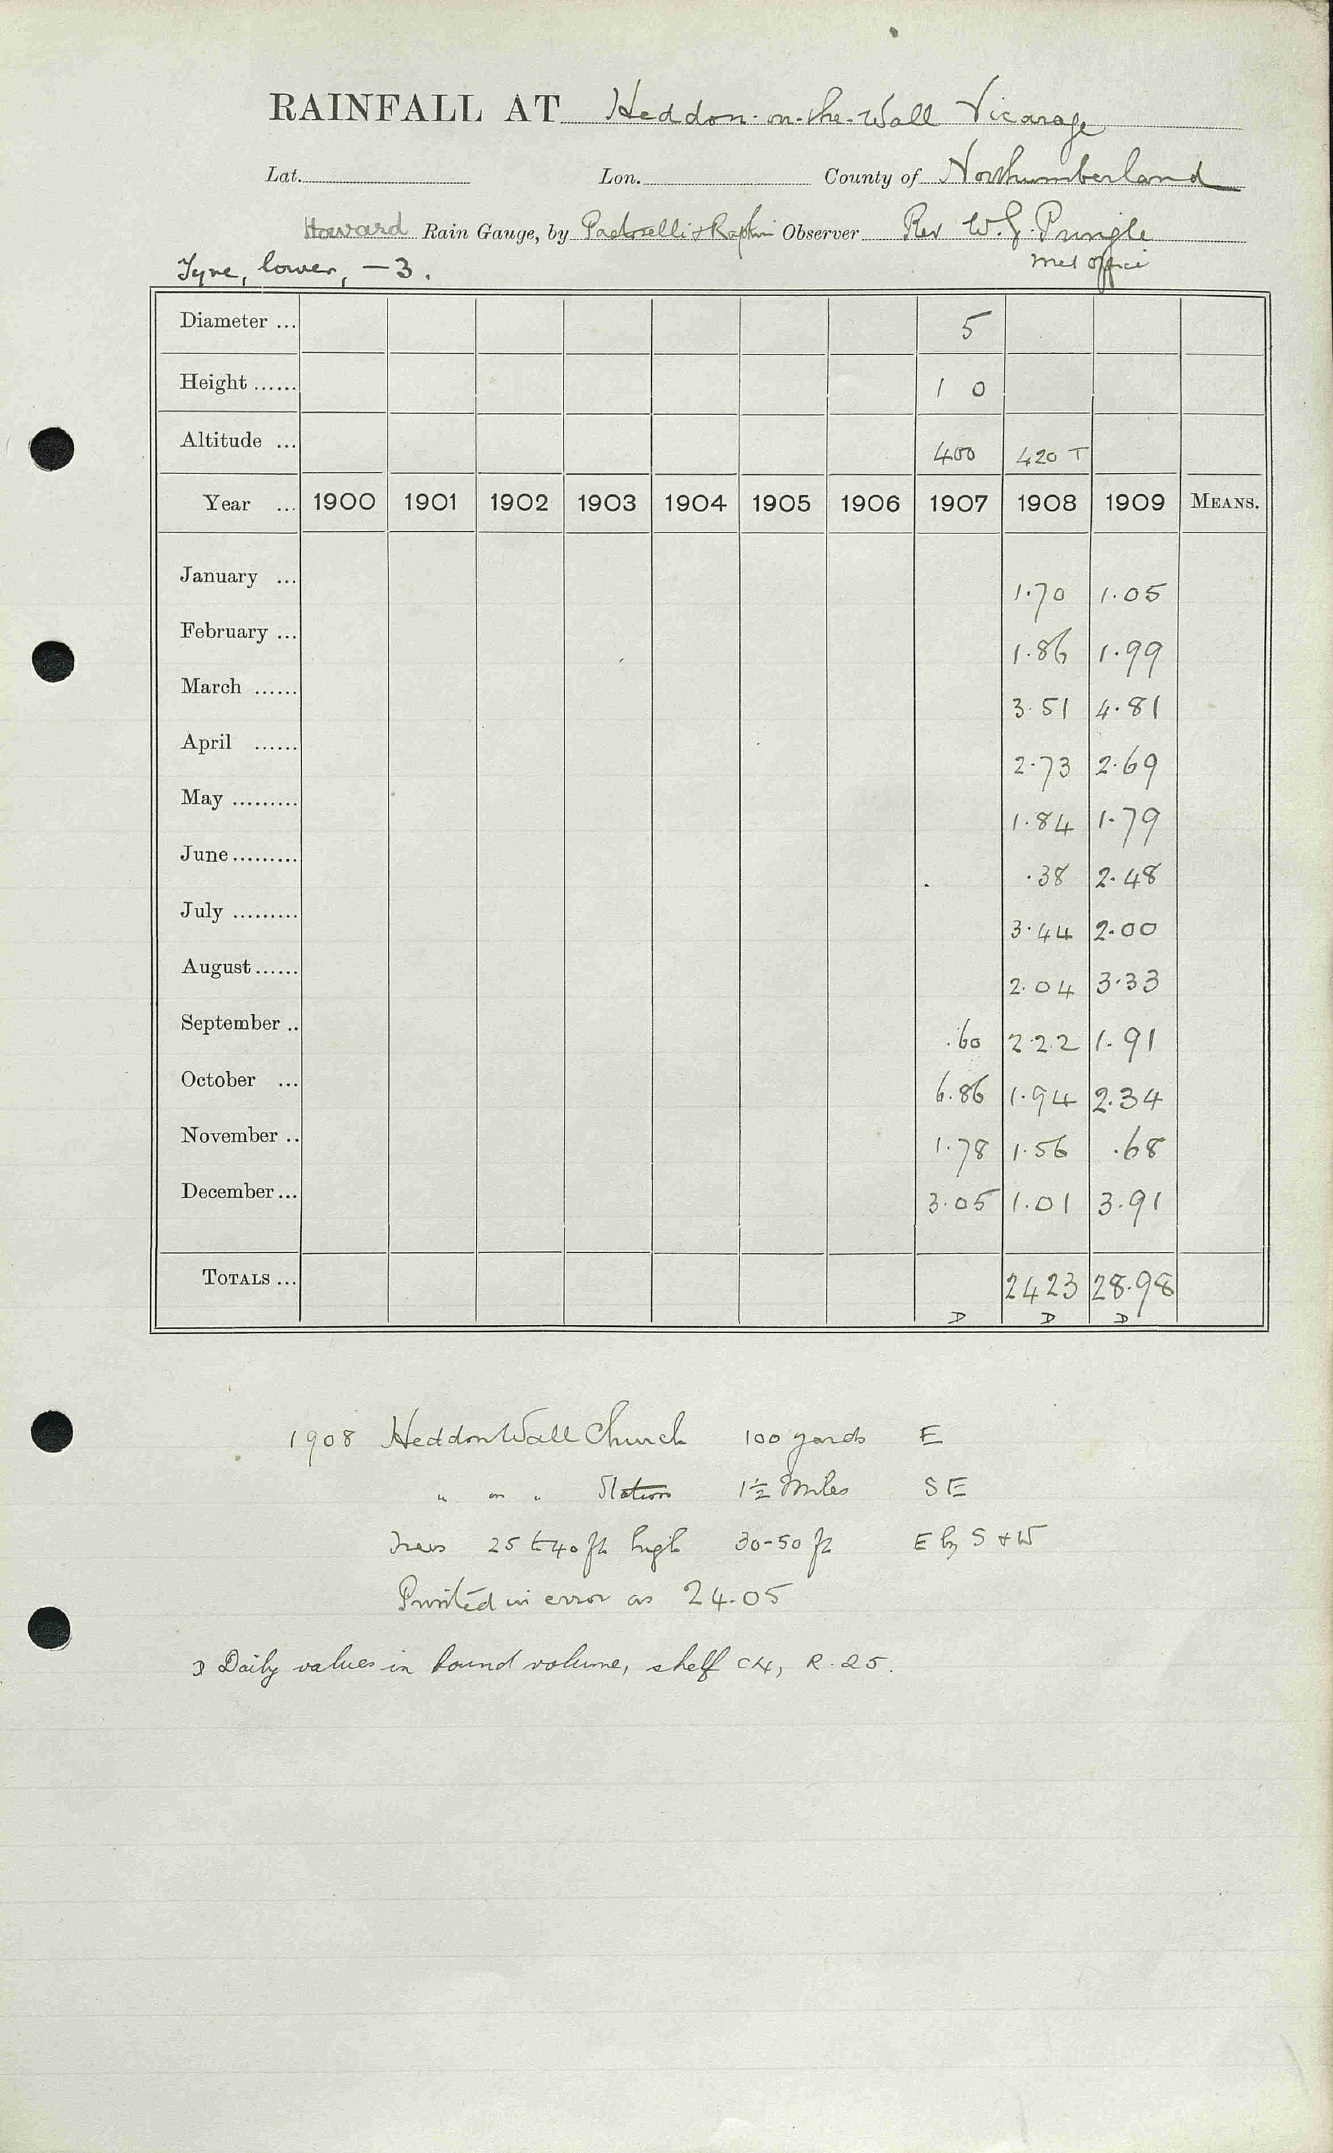 RAINFALL AT Heddon-on-the-Wall Vicarage
Lat. Lon. County of Northumberland
Howard Rain Gauge, by Pastorelli & Rapkin Observer Rev W. G. Pringle
Tyne, lower, -3. Met Office
Diameter ... 5
Height ...... 1 0
Altitude ... 400 420 T
Year ... 1900 1901 1902 1903 1904 1905 1906 1907 1908 1909 MEANS.
January ... 1.70 1.05
February ... 1.86 1.99
March ...... 3.51 4.81
April ...... 2.73 2.69
May ......... 1.84 1.79
June ......... .38 2.48
July ......... 3.44 2.00
August ...... 2.04 3.33
September .. .60 2.22 1.91
October ... 6.86 1.94 2.34
November .. 1.78 1.56 .68
December ... 3.05 1.01 3.91
TOTALS ... 2423 28.98
D D D
1908 Heddon Wall Church 100 yards E
" on " Station 1½ Miles SE
Trees 25 to 40 ft high 30-50 ft E by S & W
Printed in error as 24.05
D Daily values in bound volume, shelf C4, R.25.